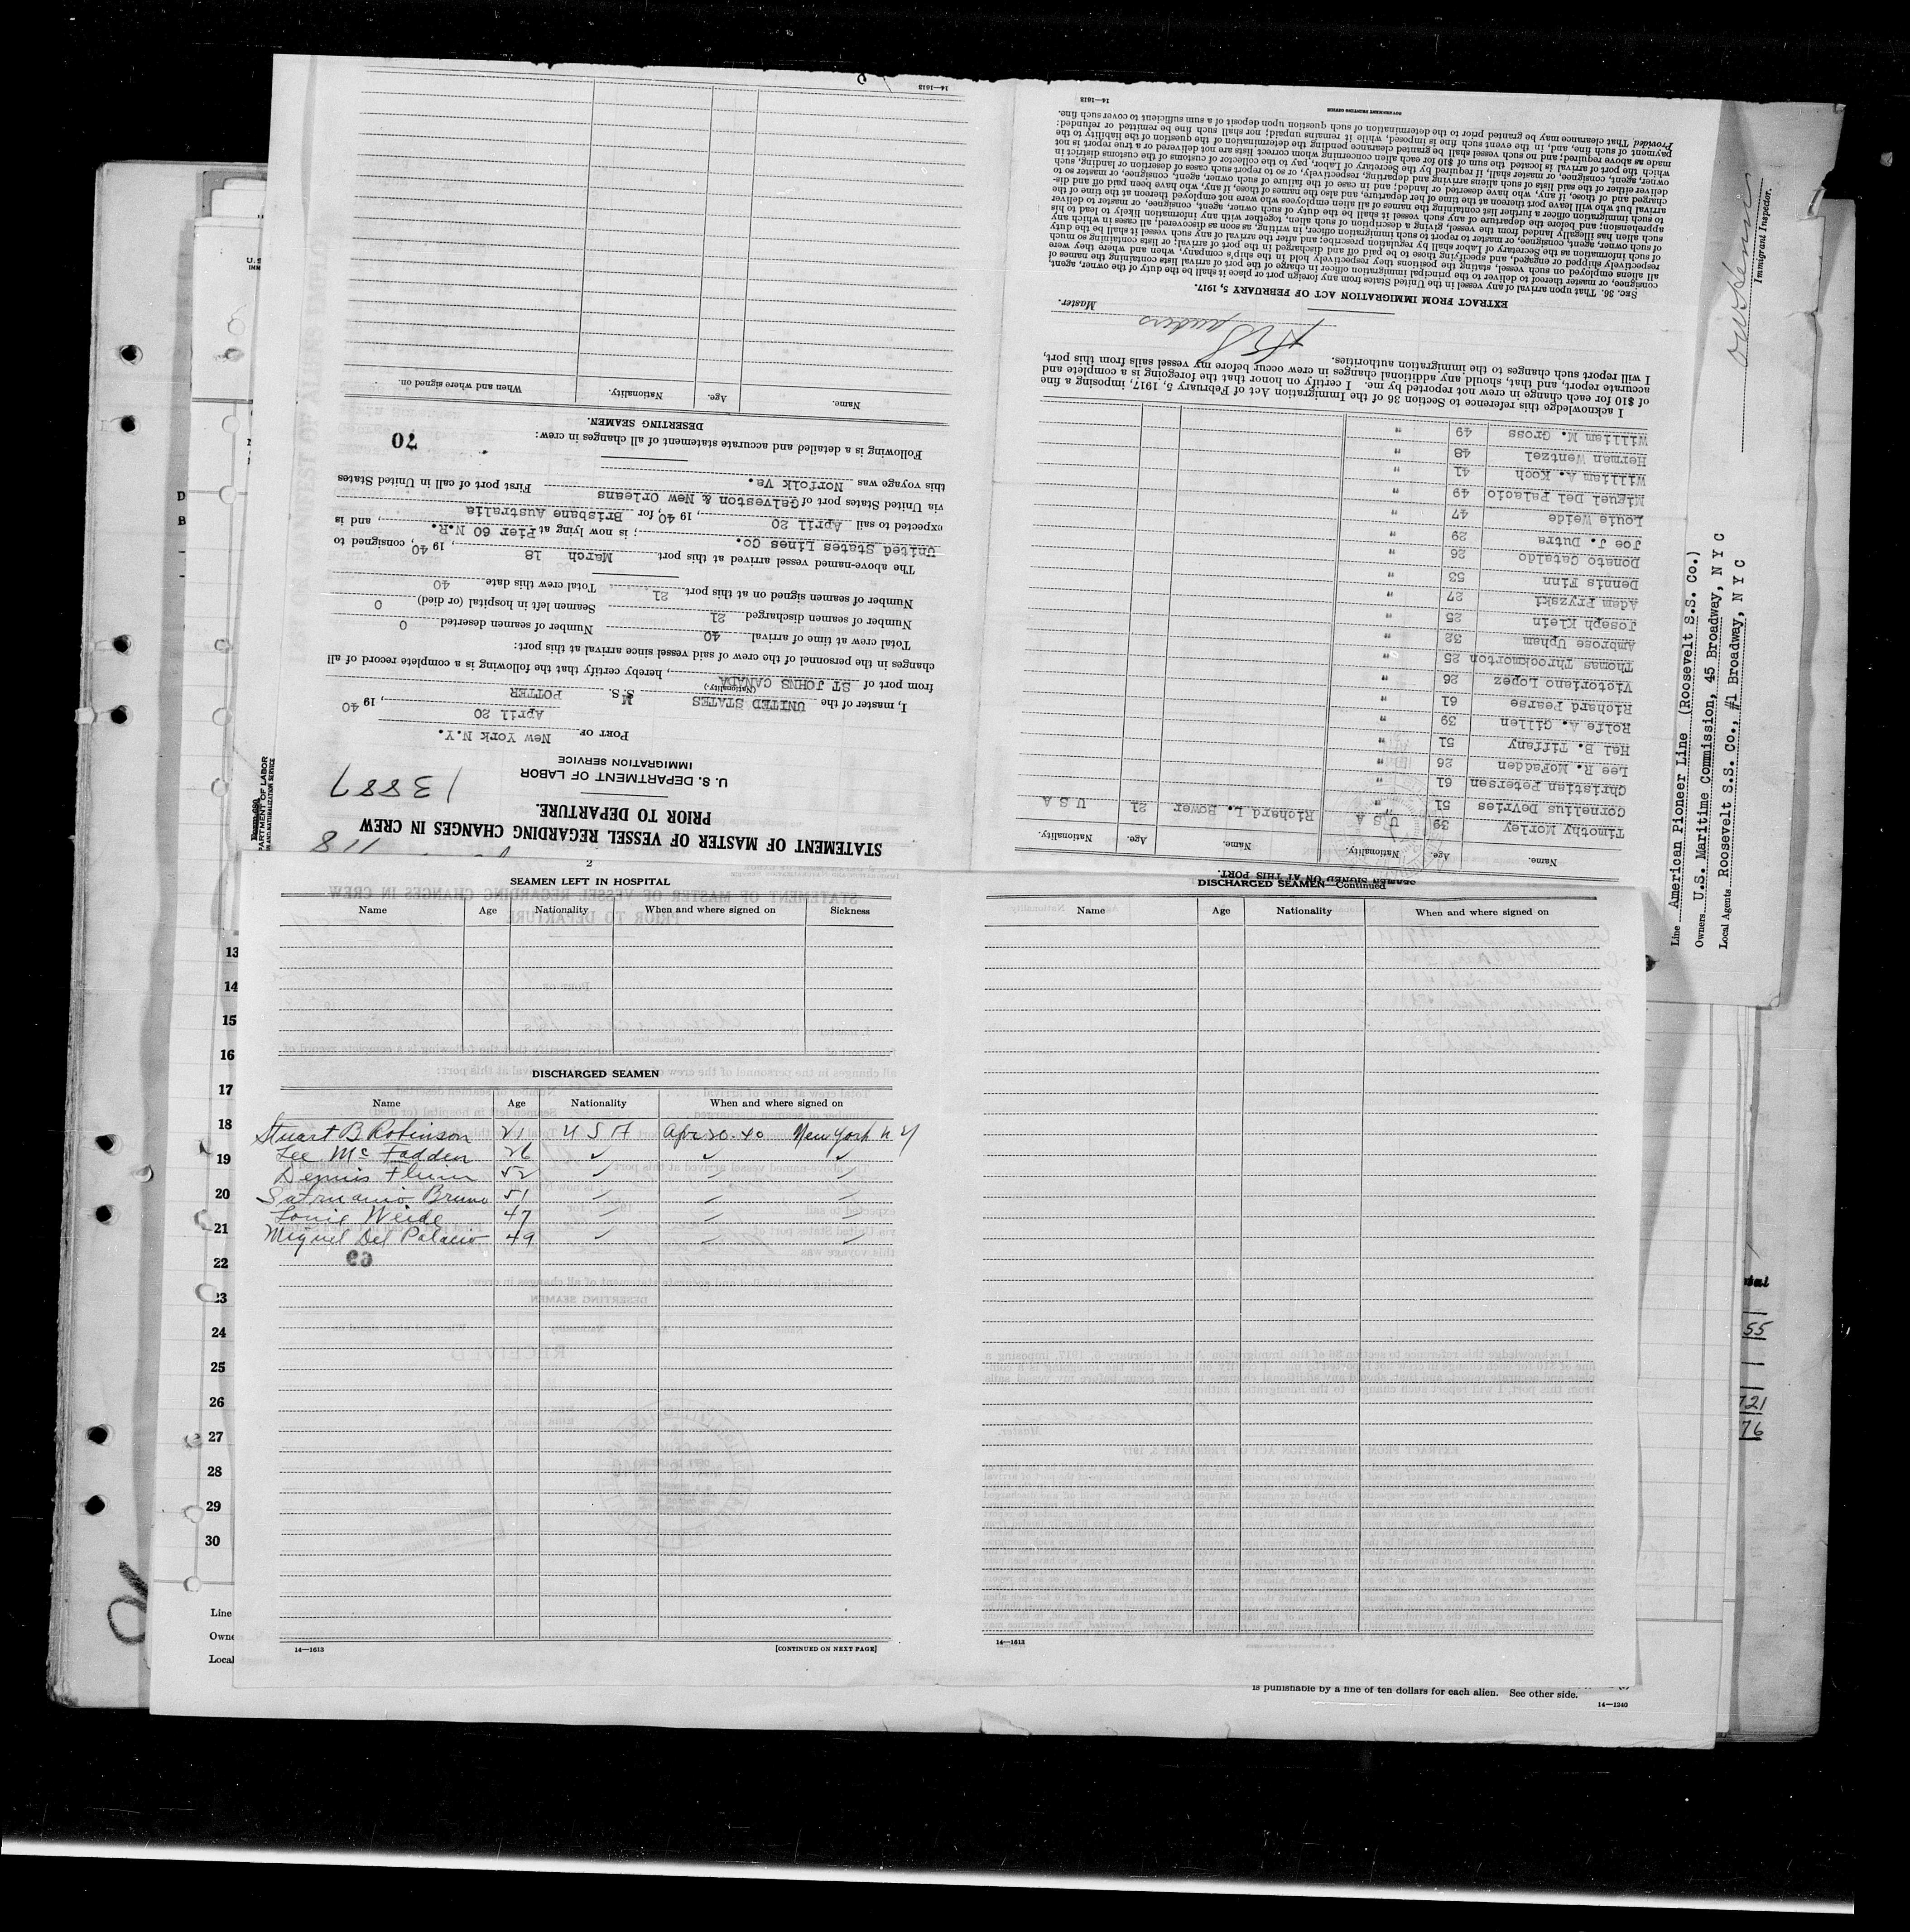 STATEMENT OF MASTER OF VESSEL REGARDING CHANGES IN CREW
PRIOR TO DEPARTURE.
U. S. DEPARTMENT OF LABOR
IMMIGRATION SERVICE
13887
PORT OF New York N.Y.
April 20, 1940
I, master of the UNITED STATES M.S. POTTER
(Nationality.)
from port of ST JOHNS CANADA, hereby certify that the following is a complete record of all
changes in the personnel of the crew of said vessel since arrival at this port:
Total crew at time of arrival 40 Number of seamen deserted 0
Number of seamen discharged 21 Seamen left in hospital (or died) 0
Number of seamen signed on at this port 21 Total crew this date 40
The above-named vessel arrived at this port March 18, 1940, consigned to
United States Lines Co.; is now lying at Pier 60 N.R., and is
expected to sail April 20, 1940, for Brisbane Australia
via United States port of Galveston & New Orleans
this voyage was Norfolk Va. First port of call in United States
Following is a detailed and accurate statement of all changes in crew:
70
DESERTING SEAMEN.
Name. Age. Nationality. When and where signed on.
14—1613
SEAMEN SIGNED ON AT THIS PORT.
Name. Age. Nationality. Name. Age. Nationality.
Timothy Morley 39 U S A Richard L. Bower 21 U S A
Cornelius DeVries 51 "
Christian Petersen 61 "
Lee R. McFadden 26 "
Hal B. Tiffany 51 "
Rolfe A. Gillen 39 "
Richard Pearse 61 "
Victoriano Lopez 26 "
Thomas Throckmorton 25 "
Ambrose Upham 32 "
Joseph Klein 25 "
Adam Pryzski 27 "
Dennis Finn 53 "
Donato Cataldo 26 "
Joe J. Dutra 29 "
Louie Weide 47 "
Miguel Del Palacio 49 "
William A. Koch 41 "
Herman Wentzel 48 "
William M. Gross 49 "
I acknowledge this reference to Section 36 of the Immigration Act of February 5, 1917, imposing a fine
of $10 for each change in crew not reported by me. I certify on honor that the foregoing is a complete and
accurate report, and that, should any additional changes in crew occur before my vessel sails from this port,
I will report such changes to the immigration authorities.
Master.
EXTRACT FROM IMMIGRATION ACT OF FEBRUARY 5, 1917.
SEC. 36. That upon arrival of any vessel in the United States from any foreign port or place it shall be the duty of the owner, agent,
consignee, or master thereof to deliver to the principal immigration officer in charge of the port of arrival lists containing the names of
all aliens employed on such vessel, stating the positions they respectively hold in the ship's company, when and where they were
respectively shipped or engaged, and specifying those to be paid off and discharged in the port of arrival; or lists containing so much
of such information as the Secretary of Labor shall by regulation prescribe; and after the arrival of any such vessel it shall be the duty
of such owner, agent, consignee, or master to report to such immigration officer, in writing, as soon as discovered, all cases in which any
such alien has illegally landed from the vessel, giving a description of such alien, together with any information likely to lead to his
apprehension; and before the departure of any such vessel it shall be the duty of such owner, agent, consignee, or master to deliver
to such immigration officer a further list containing the names of all alien employees who were not employed thereon at the time of the
arrival but who will leave port thereon at the time of her departure, and also the names of those, if any, who have been paid off and dis-
charged and of those, if any, who have deserted or landed; and in case of the failure of such owner, agent, consignee, or master so to
deliver either of the said lists of such aliens arriving and departing, respectively, or so to report such cases of desertion or landing, such
owner, agent, consignee, or master shall, if required by the Secretary of Labor, pay to the collector of customs of the customs district in
which the port of arrival is located the sum of $10 for each alien concerning whom correct lists are not delivered or a true report is not
made as above required; and no such vessel shall be granted clearance pending the determination of the question of the liability to the
payment of such fine, and, in the event such fine is imposed, while it remains unpaid; nor shall such fine be remitted or refunded:
Provided, That clearance may be granted prior to the determination of such question upon deposit of a sum sufficient to cover such fine.
GOVERNMENT PRINTING OFFICE
14—1613
Immigrant Inspector.
Line American Pioneer Line (Roosevelt S.S. Co.)
Owners U.S. Maritime Commission, 45 Broadway, N Y C
Local Agents Roosevelt S.S. Co., #1 Broadway, N Y C
2
SEAMEN LEFT IN HOSPITAL
Name Age Nationality When and where signed on Sickness
DISCHARGED SEAMEN
Name Age Nationality When and where signed on
Stuart B Robinson 21 U S A Apr 20-40 New York N Y
Lee Mc Fadden 26 ✓ ✓ ✓
Dennis Flinn 52
Saturnanio Bruno 51
Louie Weide 47
Miguel Del Palacio 49
69
14—1613
[CONTINUED ON NEXT PAGE]
DISCHARGED SEAMEN—Continued
Name Age Nationality When and where signed on
14—1613
13
14
15
16
17
18
19
20
21
22
23
24
25
26
27
28
29
30
Line
Owne
Local
55
721
76
is punishable by a fine of ten dollars for each alien. See other side.
14—1240